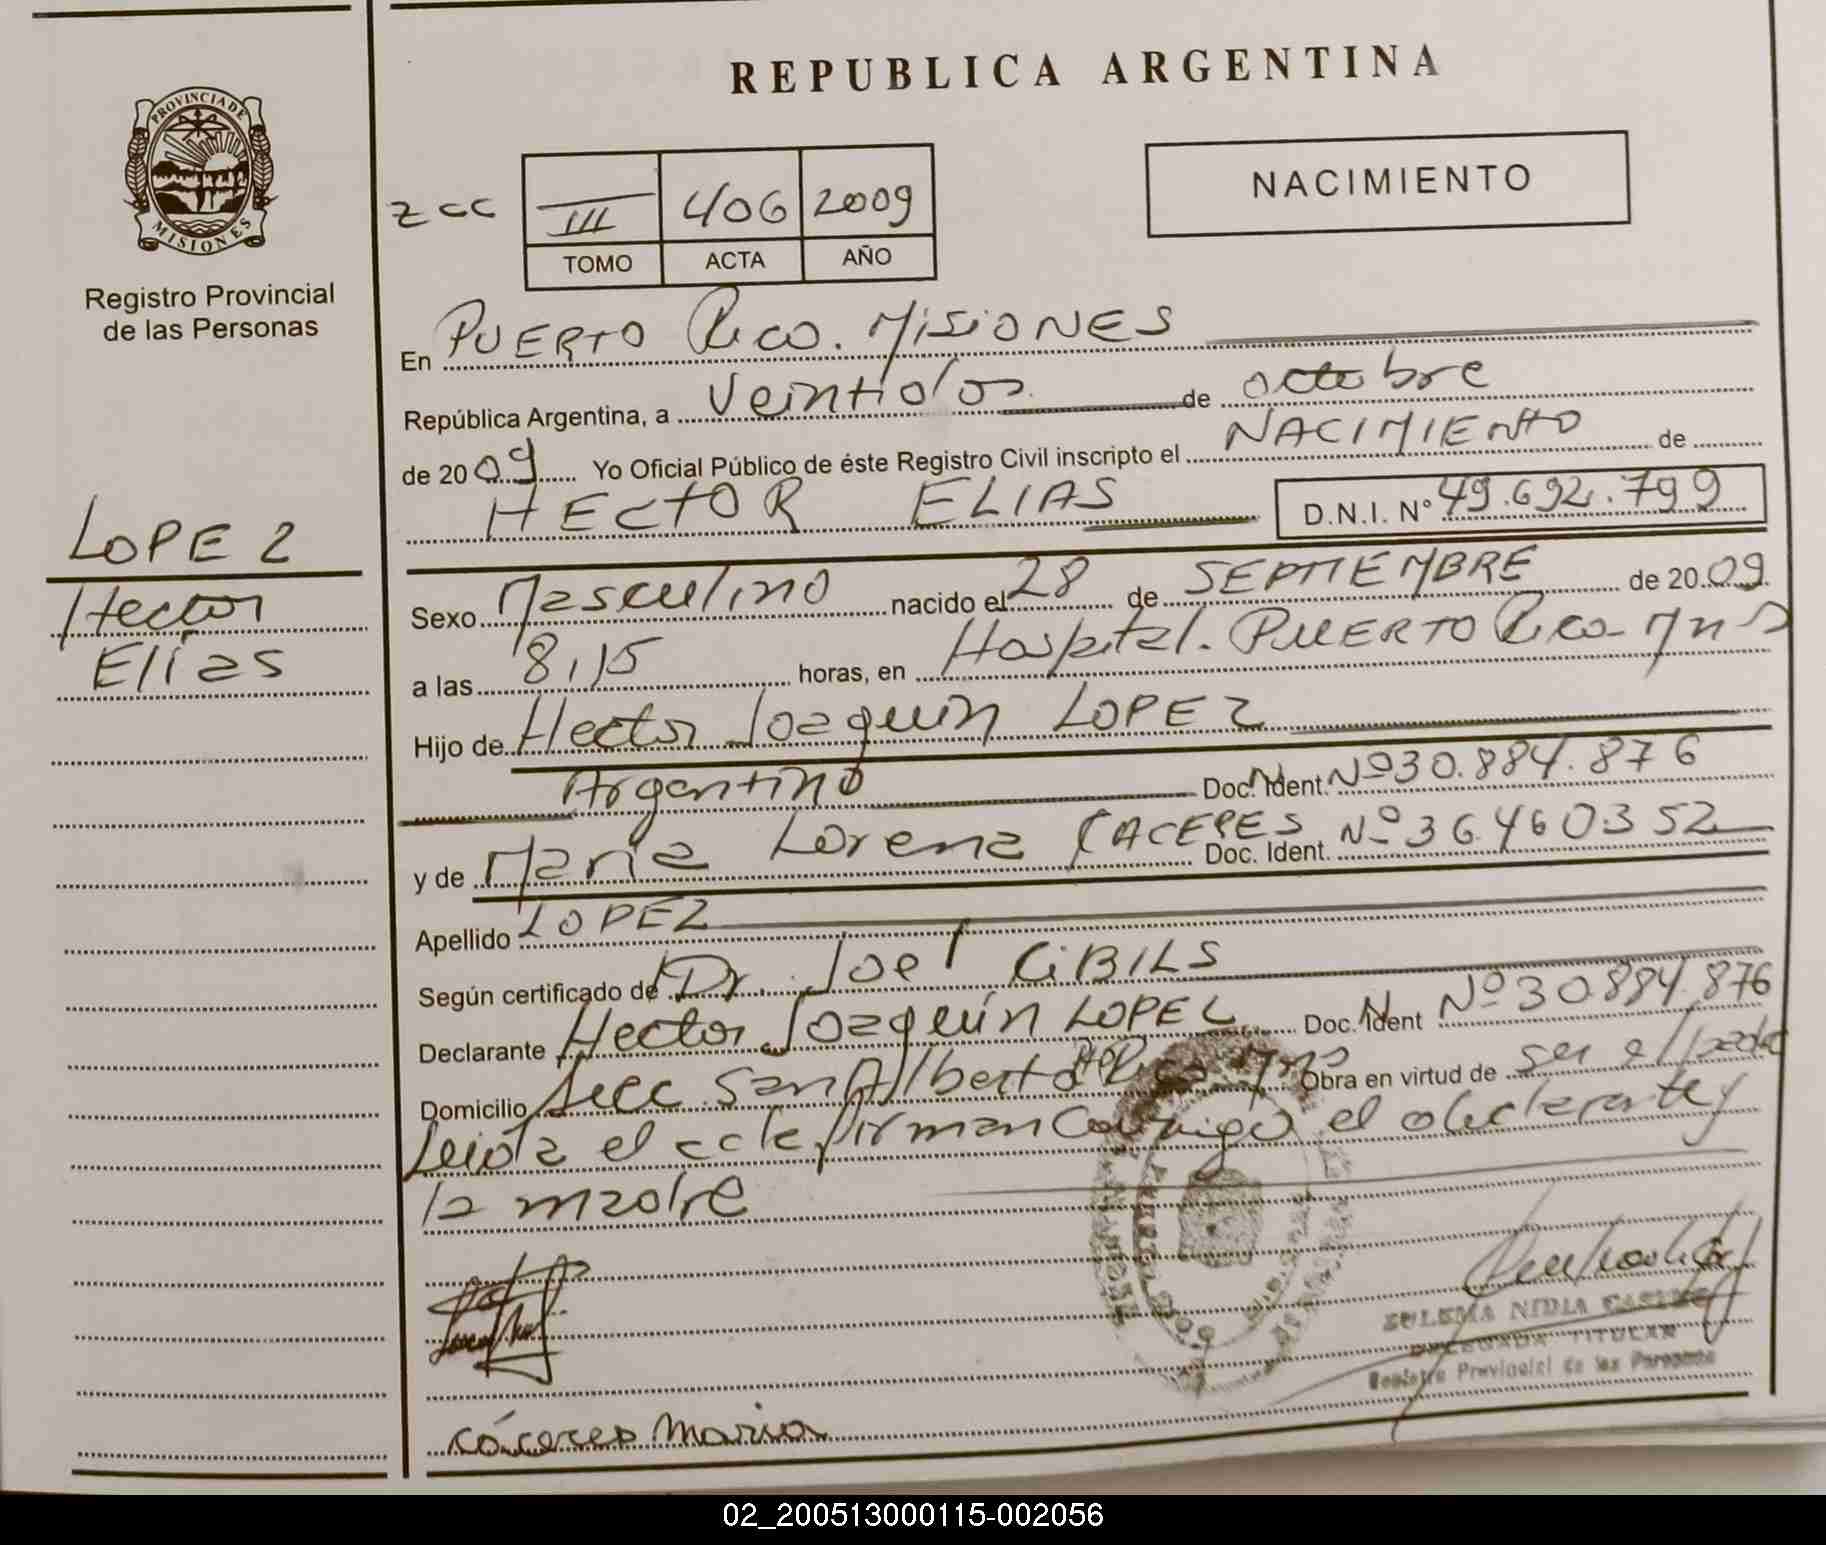 REPUBLICA ARGENTINA
PROVINCIA DE
MISIONES
Registro Provincial
de las Personas
NACIMIENTO
zcc III 406 2009
TOMO ACTA AÑO
En PUERTO Rico. MISIONES
República Argentina, a veintidos de octubre
de 2009 Yo Oficial Público de éste Registro Civil inscripto el NACIMIENTO de
HECTOR ELIAS D.N.I. N° 49.692.799
LOPEZ
Hector
Elías
Sexo Masculino nacido el 28 de SEPTIEMBRE de 2009
a las 8,15 horas, en Hospital. PUERTO Rico- Mns
Hijo de Hector Joaquín LOPEZ
Argentino Doc. N. Ident. Nº 30.884.876
y de María Lorena CACERES Doc. Ident. Nº 36.460.352
Apellido LOPEZ
Según certificado de Dr. Joel CIBILS
Declarante Hector Joaquín LOPEZ Doc. N. Ident Nº 30.884.876
Domicilio Secc San Alberto Pto Rico Mns Obra en virtud de ser el padre
Leida el acta firman conmigo el declarante y
la madre
ZULEMA NIDIA
DELEGADA TITULAR
Registro Provincial de las Personas
Cáceres Maria
02_200513000115-002056